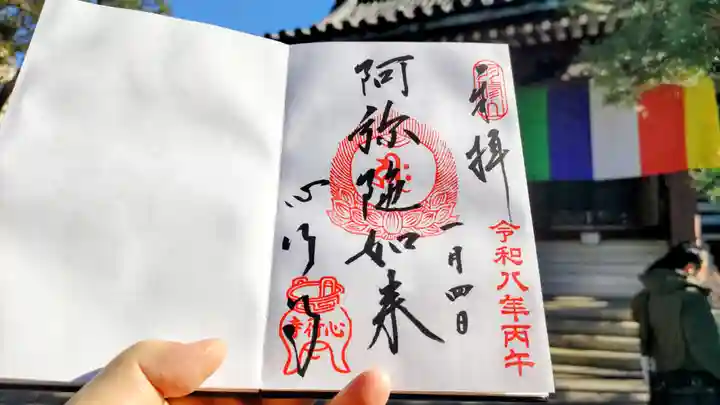 礼拝
令和八年丙午
一月四日
阿弥陀如来
心行寺
心行寺